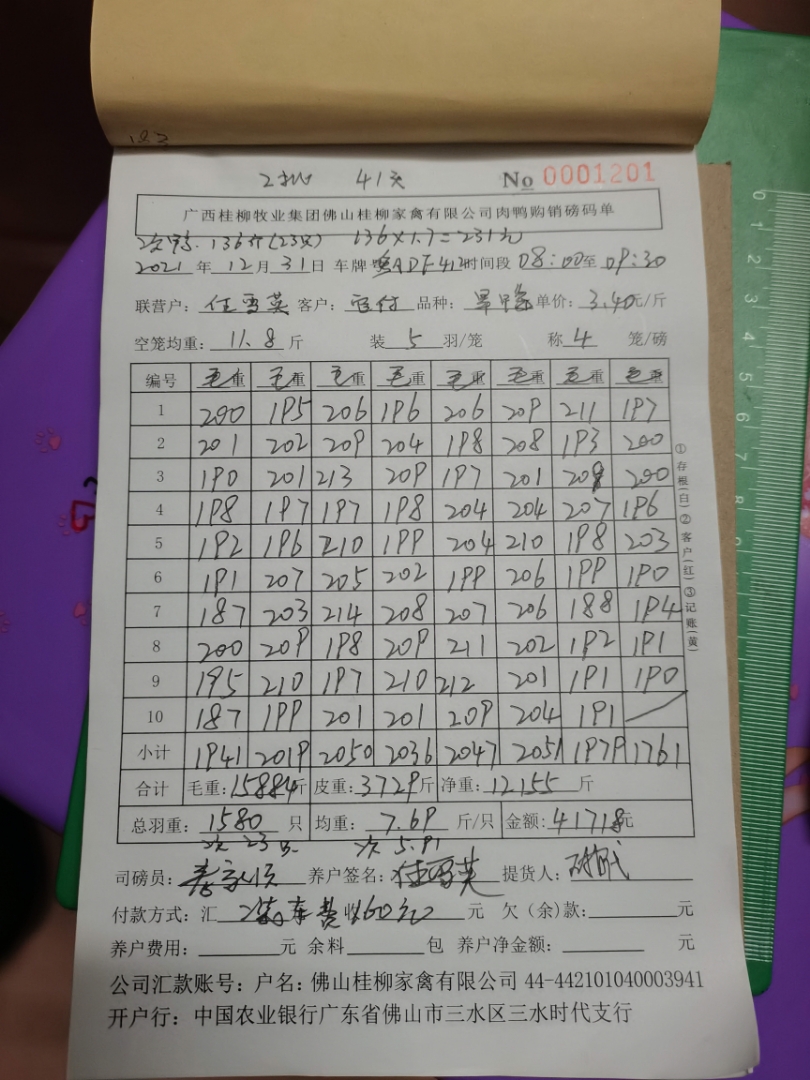 183
41天 No 0001201
广西桂柳牧业集团佛山桂柳家禽有限公司肉鸭购销磅码单
次鸭 136斤(23只) 136×1.7=231元
2021 年 12 月 31 日 车牌 ADF412 时间段 08:00 至 09:30
联营户: 任雪英 客户: 品种: 单价: 3.40元/斤
空笼均重: 11.8 斤 装 5 羽/笼 称 4 笼/磅
编号 毛重 毛重 毛重 毛重 毛重 毛重 毛重 毛重
1 200 195 206 196 206 209 211 197
2 201 202 209 204 198 208 193 200
3 190 201 213 209 197 201 209 200
4 198 197 197 198 204 204 207 196
5 192 196 210 199 204 210 198 203
6 191 207 205 202 199 206 199 190
7 187 203 214 208 207 206 188 194
8 200 209 198 209 211 202 192 191
9 195 210 197 210 212 201 191 190
10 187 199 201 201 209 204 191
小计 1941 2019 2050 2036 2047 2051 1979 1761
合计 毛重:15884斤 皮重:3729斤 净重:12155斤
总羽重: 1580 只 均重: 7.69 斤/只 金额:41718元
次 23只 次 5.91
司磅员: 养户签名: 任雪英 提货人:
付款方式: 汇 车费收60元 元 欠(余)款: 元
养户费用: 元 余料 包 养户净金额: 元
公司汇款账号: 户名: 佛山桂柳家禽有限公司 44-442101040003941
开户行: 中国农业银行广东省佛山市三水区三水时代支行
①存根(白)②客户(红)③记账(黄)